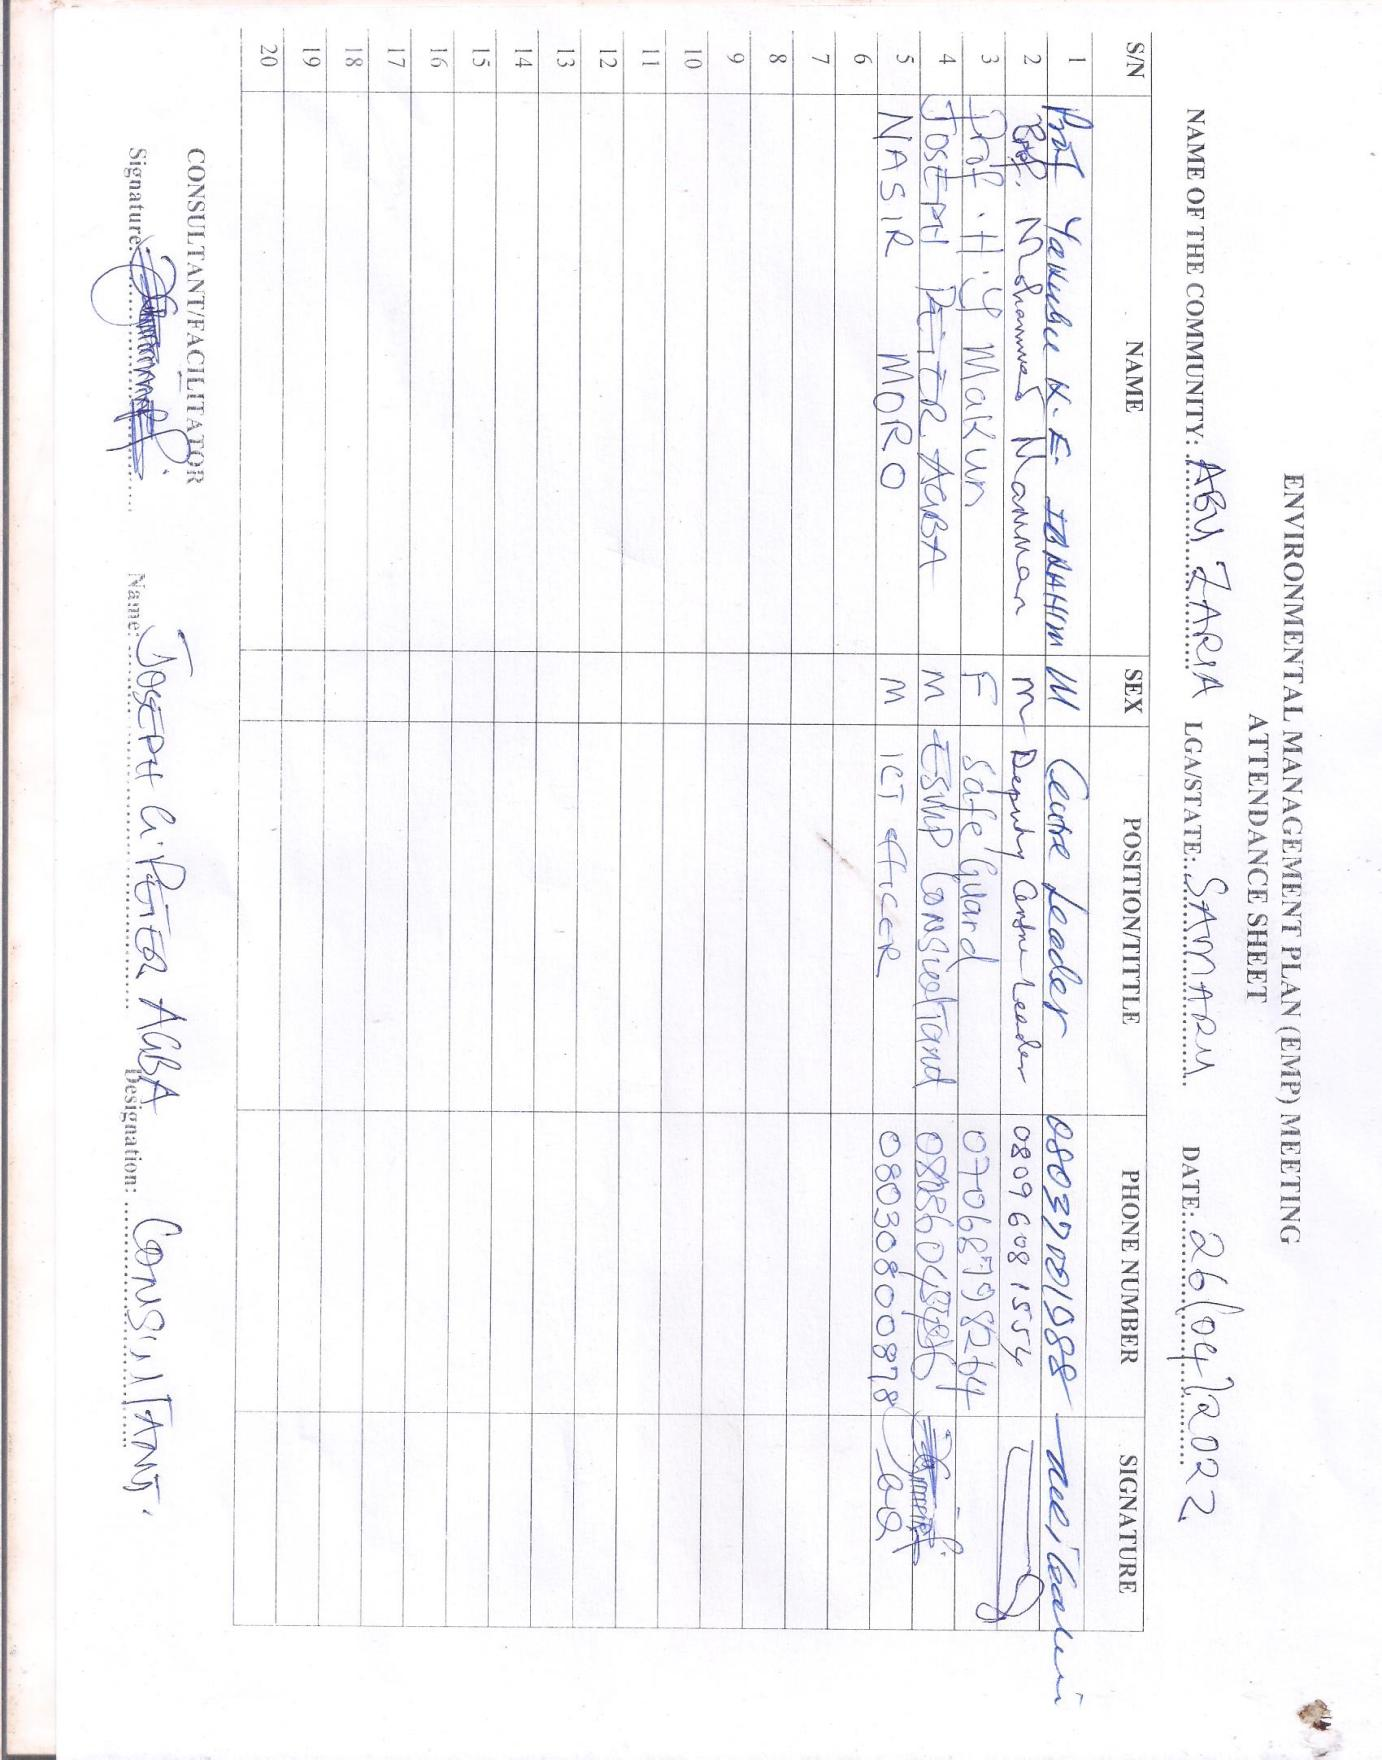 ENVIRONMENTAL MANAGEMENT PLAN (EMP) MEETING
ATTENDANCE SHEET
NAME OF THE COMMUNITY: ABU ZARIA LGA/STATE: SAMARU DATE: 26/04/2022
S/N NAME SEX POSITION/TITTLE PHONE NUMBER SIGNATURE
1 Prof Yakubu K. E IBRAHIM M Centre Leader
2 Prof. Mohammed Mamman M Deputy Centre Leader 08096081554
3 Prof. H.Y Makun F Safe Guard 07068798264
4 JOSEPH PETER AGBA M ESMP
5 NASIR MORO M ICT OFFICER 08030800878
6
7
8
9
10
11
12
13
14
15
16
17
18
19
20
CONSULTANT/FACILITATOR
Signature: Name: JOSEPH PETER AGBA Designation: CONSULTANT